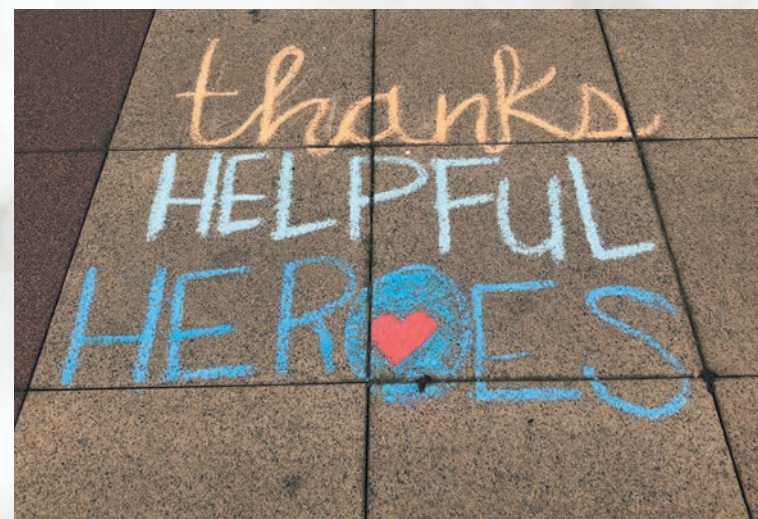 thanks
HELPFUL
HEROES